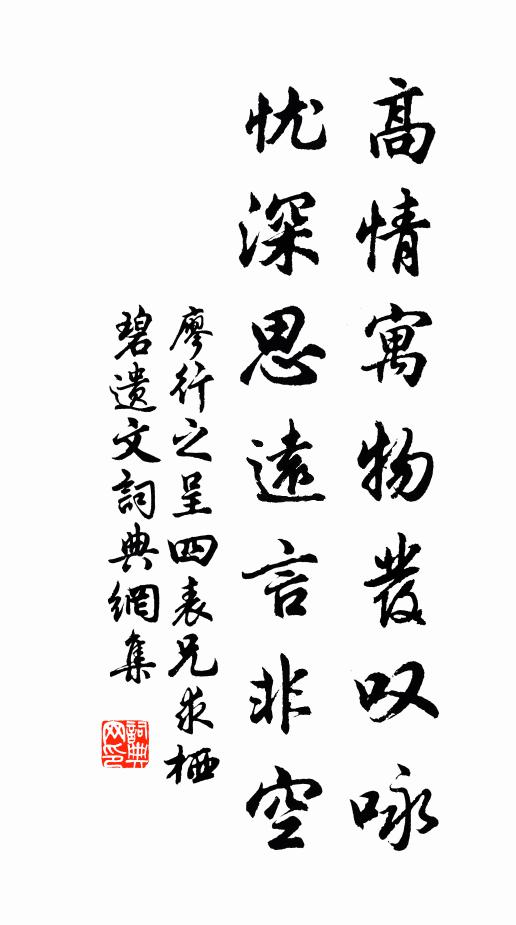 高情寓物發叹咏
忧深思遠言非空
廖行之呈四表兄求栖
碧遗文詞典網集
詞典網印